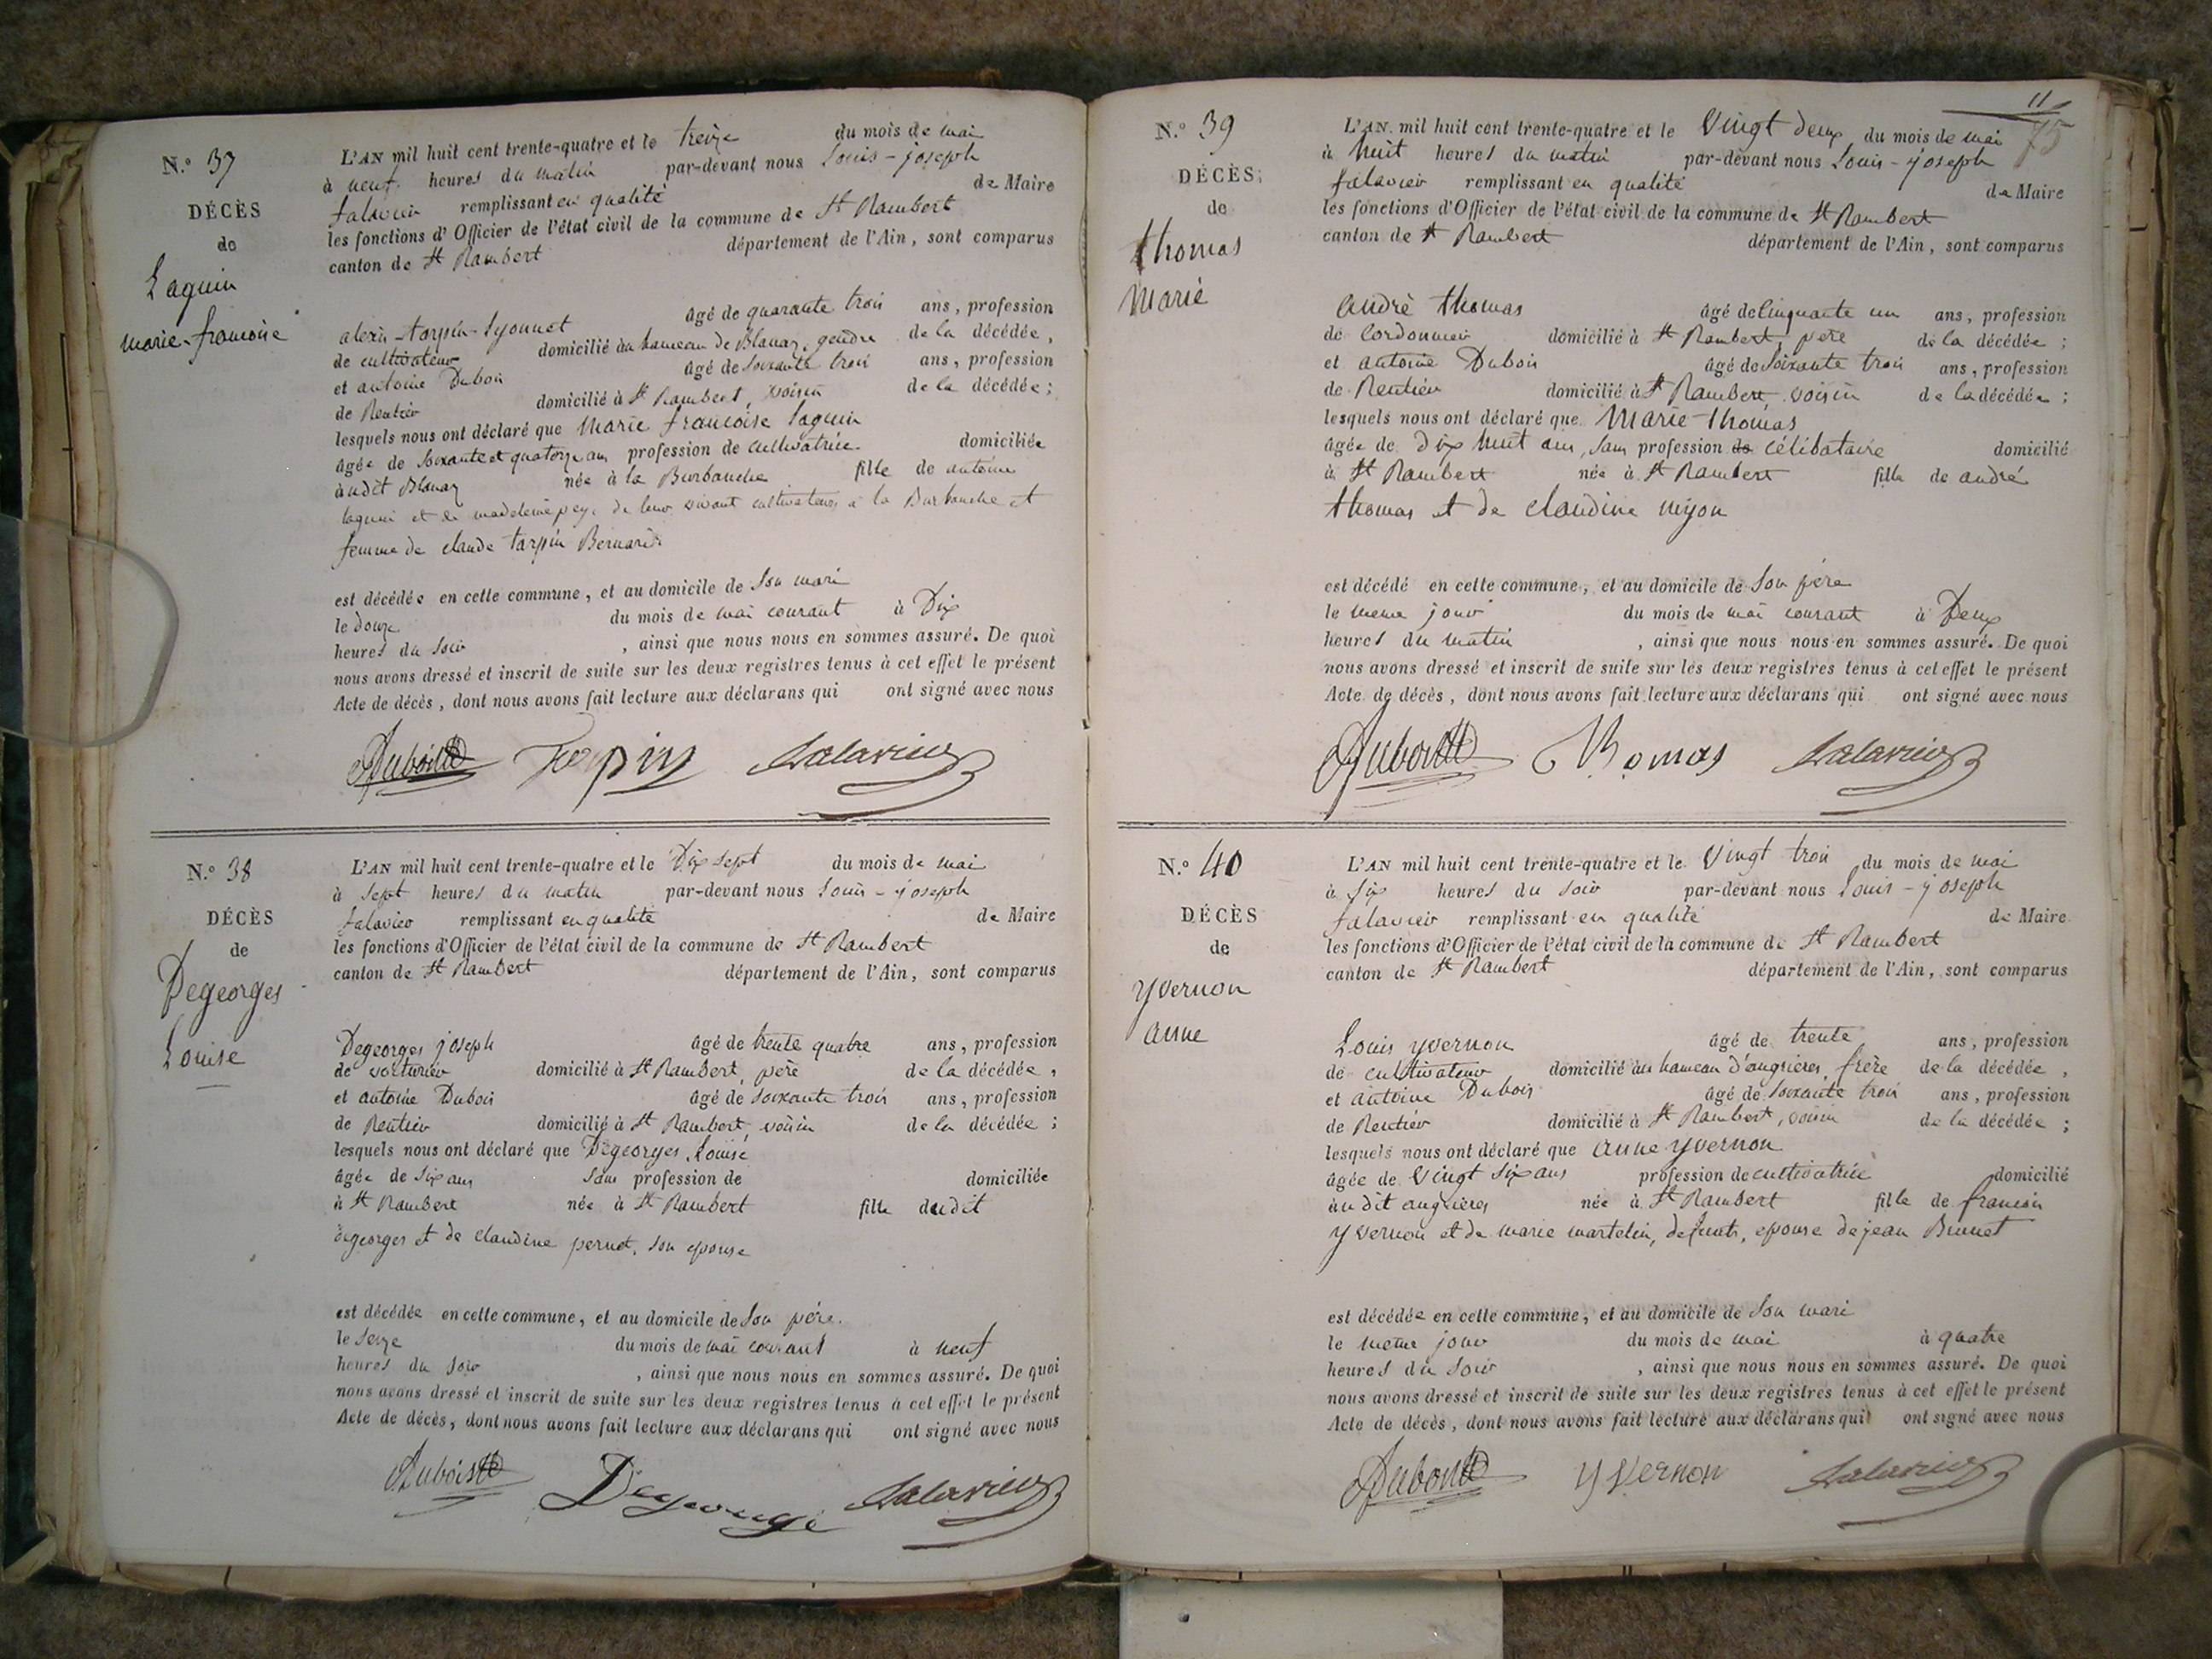 N.° 37
DÉCÈS
de
Laguin
marie-francoise
L'AN mil huit cent trente-quatre et le treize du mois de mai
à neuf heures du matin par-devant nous Louis-joseph
falavier remplissant en qualité de Maire
les fonctions d'Officier de l'état civil de la commune de St Rambert
canton de St Rambert département de l'Ain, sont comparus
alexis-tarpin-Lyonnet âgé de quarante trois ans, profession
de cultivateur domicilié au hameau de Blanaz, gendre de la décédée,
et antoine Dubois âgé de soixante trois ans, profession
de Rentier domicilié à St Rambert, voisin de la décédée;
lesquels nous ont déclaré que Marie francoise Laguin
âgée de soixante et quatorze ans profession de cultivatrice domiciliée
audit Blanaz née à la Burbanche fille de antoine
laguin et de madeleine de leur vivant cultivateurs à la Burbanche et
femme de claude tarpin Bernard
est décédée en cette commune, et au domicile de son mari
le douze du mois de mai courant à Dix
heures du soir , ainsi que nous nous en sommes assuré. De quoi
nous avons dressé et inscrit de suite sur les deux registres tenus à cet effet le présent
Acte de décès, dont nous avons fait lecture aux déclarans qui ont signé avec nous
Dubois Tarpin falavier
N.° 38
DÉCÈS
de
Degeorges
Louise
L'AN mil huit cent trente-quatre et le Dix sept du mois de mai
à sept heures du matin par-devant nous Louis-joseph
falavier remplissant en qualité de Maire
les fonctions d'Officier de l'état civil de la commune de St Rambert
canton de St Rambert département de l'Ain, sont comparus
Degeorges joseph âgé de trente quatre ans, profession
de voiturier domicilié à St Rambert, père de la décédée,
et antoine Dubois âgé de soixante trois ans, profession
de Rentier domicilié à St Rambert, voisin de la décédée;
lesquels nous ont déclaré que Degeorges Louise
âgée de six ans sans profession de domiciliée
à St Rambert née à St Rambert fille dudit
degeorges et de claudine pernet, son epouse
est décédée en cette commune, et au domicile de son père.
le seize du mois de mai courant à neuf
heures du soir , ainsi que nous nous en sommes assuré. De quoi
nous avons dressé et inscrit de suite sur les deux registres tenus à cet effet le présent
Acte de décès, dont nous avons fait lecture aux déclarans qui ont signé avec nous
Dubois Degeorge falavier
11
75
N.° 39
DÉCÈS
de
thomas
Marie
L'AN mil huit cent trente-quatre et le Vingt deux du mois de mai
à huit heures du matin par-devant nous Louis-joseph
falavier remplissant en qualité de Maire
les fonctions d'Officier de l'état civil de la commune de St Rambert
canton de St Rambert département de l'Ain, sont comparus
andré thomas âgé de Cinquante un ans, profession
de cordonnier domicilié à St Rambert, père de la décédée;
et antoine Dubois âgé de soixante trois ans, profession
de Rentier domicilié à St Rambert voisin de la décédée;
lesquels nous ont déclaré que Marie thomas
âgée de dix huit ans, sans profession de célibataire domicilié
à St Rambert née à St Rambert fille de andré
thomas et de claudine nyon
est décédé en cette commune, et au domicile de son père
le meme jour du mois de mai courant à Deux
heures du matin , ainsi que nous nous en sommes assuré. De quoi
nous avons dressé et inscrit de suite sur les deux registres tenus à cet effet le présent
Acte de décès, dont nous avons fait lecture aux déclarans qui ont signé avec nous
Dubois Thomas falavier
N.° 40
DÉCÈS
de
yvernon
anne
L'AN mil huit cent trente-quatre et le Vingt trois du mois de mai
à six heures du soir par-devant nous Louis-joseph
falavier remplissant en qualité de Maire
les fonctions d'Officier de l'état civil de la commune de St Rambert
canton de St Rambert département de l'Ain, sont comparus
Louis yvernon âgé de trente ans, profession
de cultivateur domicilié au hameau d'angrieres, frère de la décédée,
et antoine Dubois âgé de soixante trois ans, profession
de Rentier domicilié à St Rambert, voisin de la décédée;
lesquels nous ont déclaré que anne yvernon
âgée de vingt six ans profession de cultivatrice domicilié
audit angrieres née à St Rambert fille de francois
yvernon et de marie martelin, defunts, epouse de jean Brunet
est décédée en cette commune, et au domicile de son mari
le même jour du mois de mai à quatre
heures du soir , ainsi que nous nous en sommes assuré. De quoi
nous avons dressé et inscrit de suite sur les deux registres tenus à cet effet le présent
Acte de décès, dont nous avons fait lecture aux déclarans qui ont signé avec nous
Dubois yvernon falavier